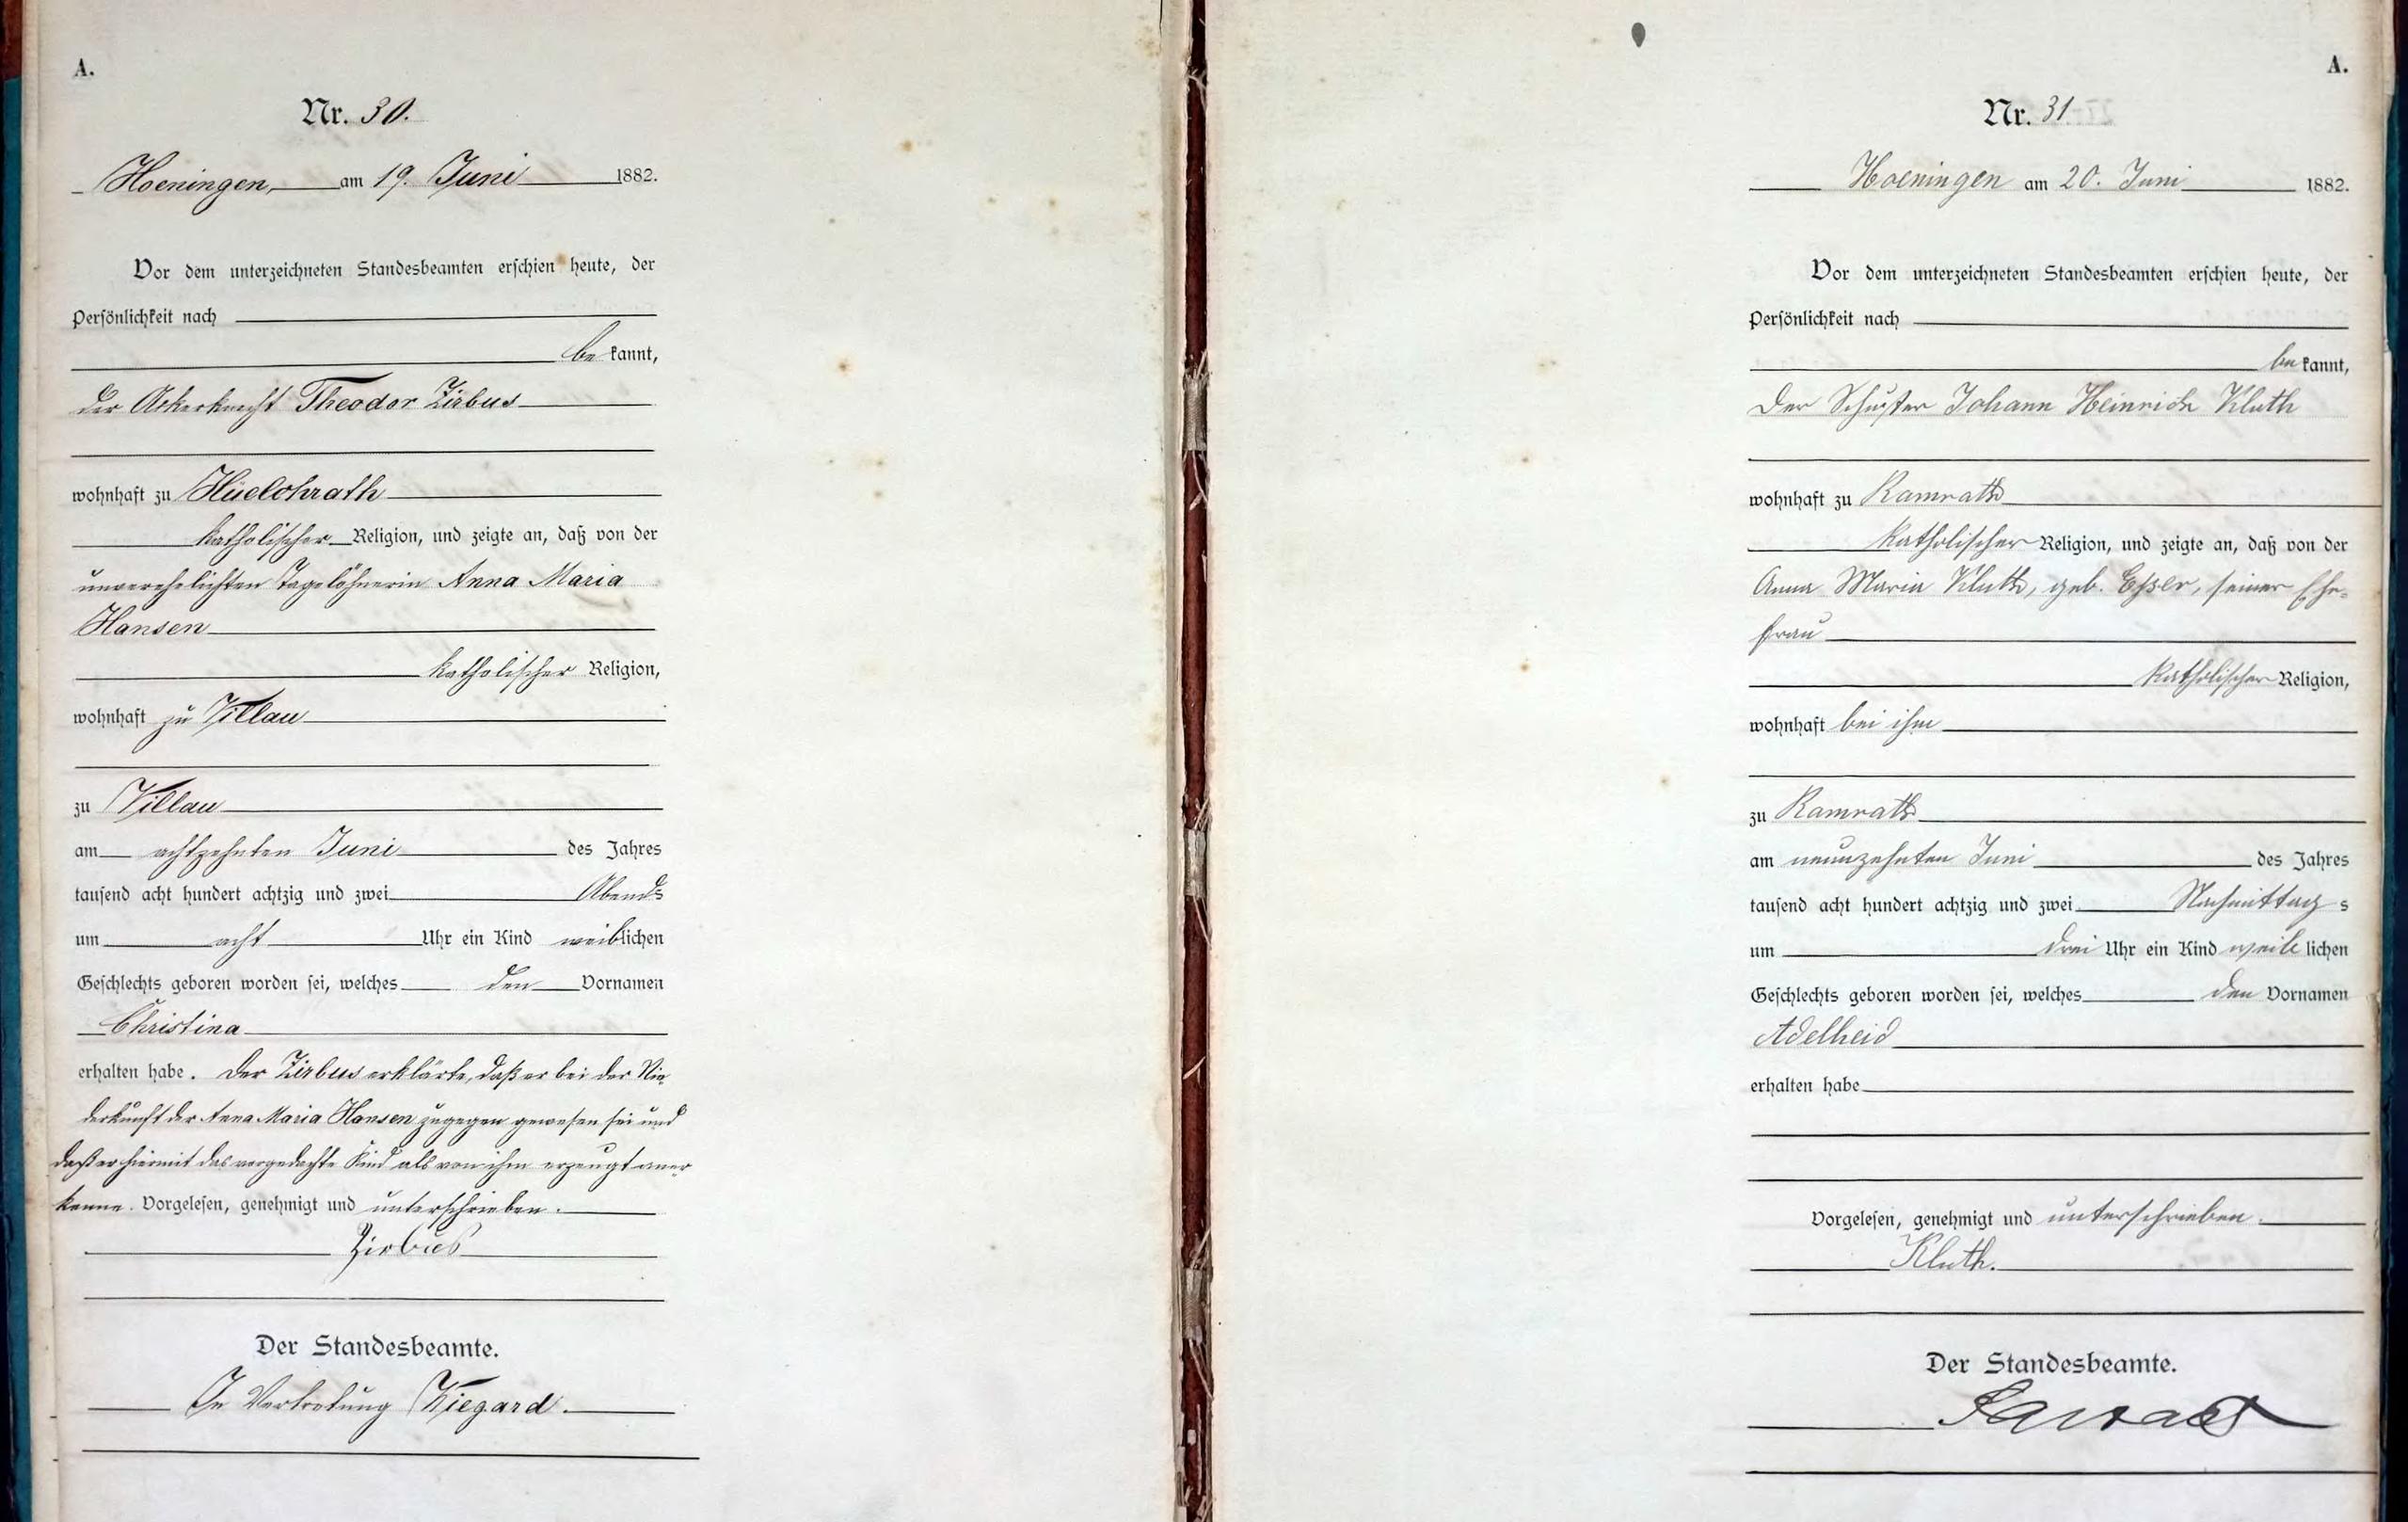 A.
Nr. 30.
Hoeningen, am 19. Juni 1882.
Vor dem unterzeichneten Standesbeamten erschien heute, der
Persönlichkeit nach
bekannt,
der Ackerknecht Theodor Zirbus
wohnhaft zu Hüelchrath
katholischer Religion, und zeigte an, daß von der
unverehelichten Tagelöhnerin Anna Maria
Hansen
katholischer Religion,
wohnhaft zu Villau
zu Villau
am achtzehnten Juni des Jahres
tausend acht hundert achtzig und zwei Abends
um acht Uhr ein Kind weiblichen
Geschlechts geboren worden sei, welches den Vornamen
Christina
erhalten habe. Der Zirbus erklärte, daß er bei der Nie
derkunft der Anna Maria Hansen zugegen gewesen sei und
daß er hiermit das vorgedachte Kind als von ihm erzeugt aner
kenne. Vorgelesen, genehmigt und unterschrieben.
Zirbus
Der Standesbeamte.
In Vertretung Wiegard.
A.
Nr. 31
Hoeningen am 20. Juni 1882.
Vor dem unterzeichneten Standesbeamten erschien heute, der
Persönlichkeit nach
bekannt,
der Schuster Johann Heinrich Kluth
wohnhaft zu Ramrath
katholischer Religion, und zeigte an, daß von der
Anna Maria Kluth, geb. Esser, seiner Ehe-
frau
katholischer Religion,
wohnhaft bei ihm
zu Ramrath
am neunzehnten Juni des Jahres
tausend acht hundert achtzig und zwei Nachmittags
um drei Uhr ein Kind weiblichen
Geschlechts geboren worden sei, welches den Vornamen
Adelheid
erhalten habe
Vorgelesen, genehmigt und unterschrieben.
Kluth.
Der Standesbeamte.